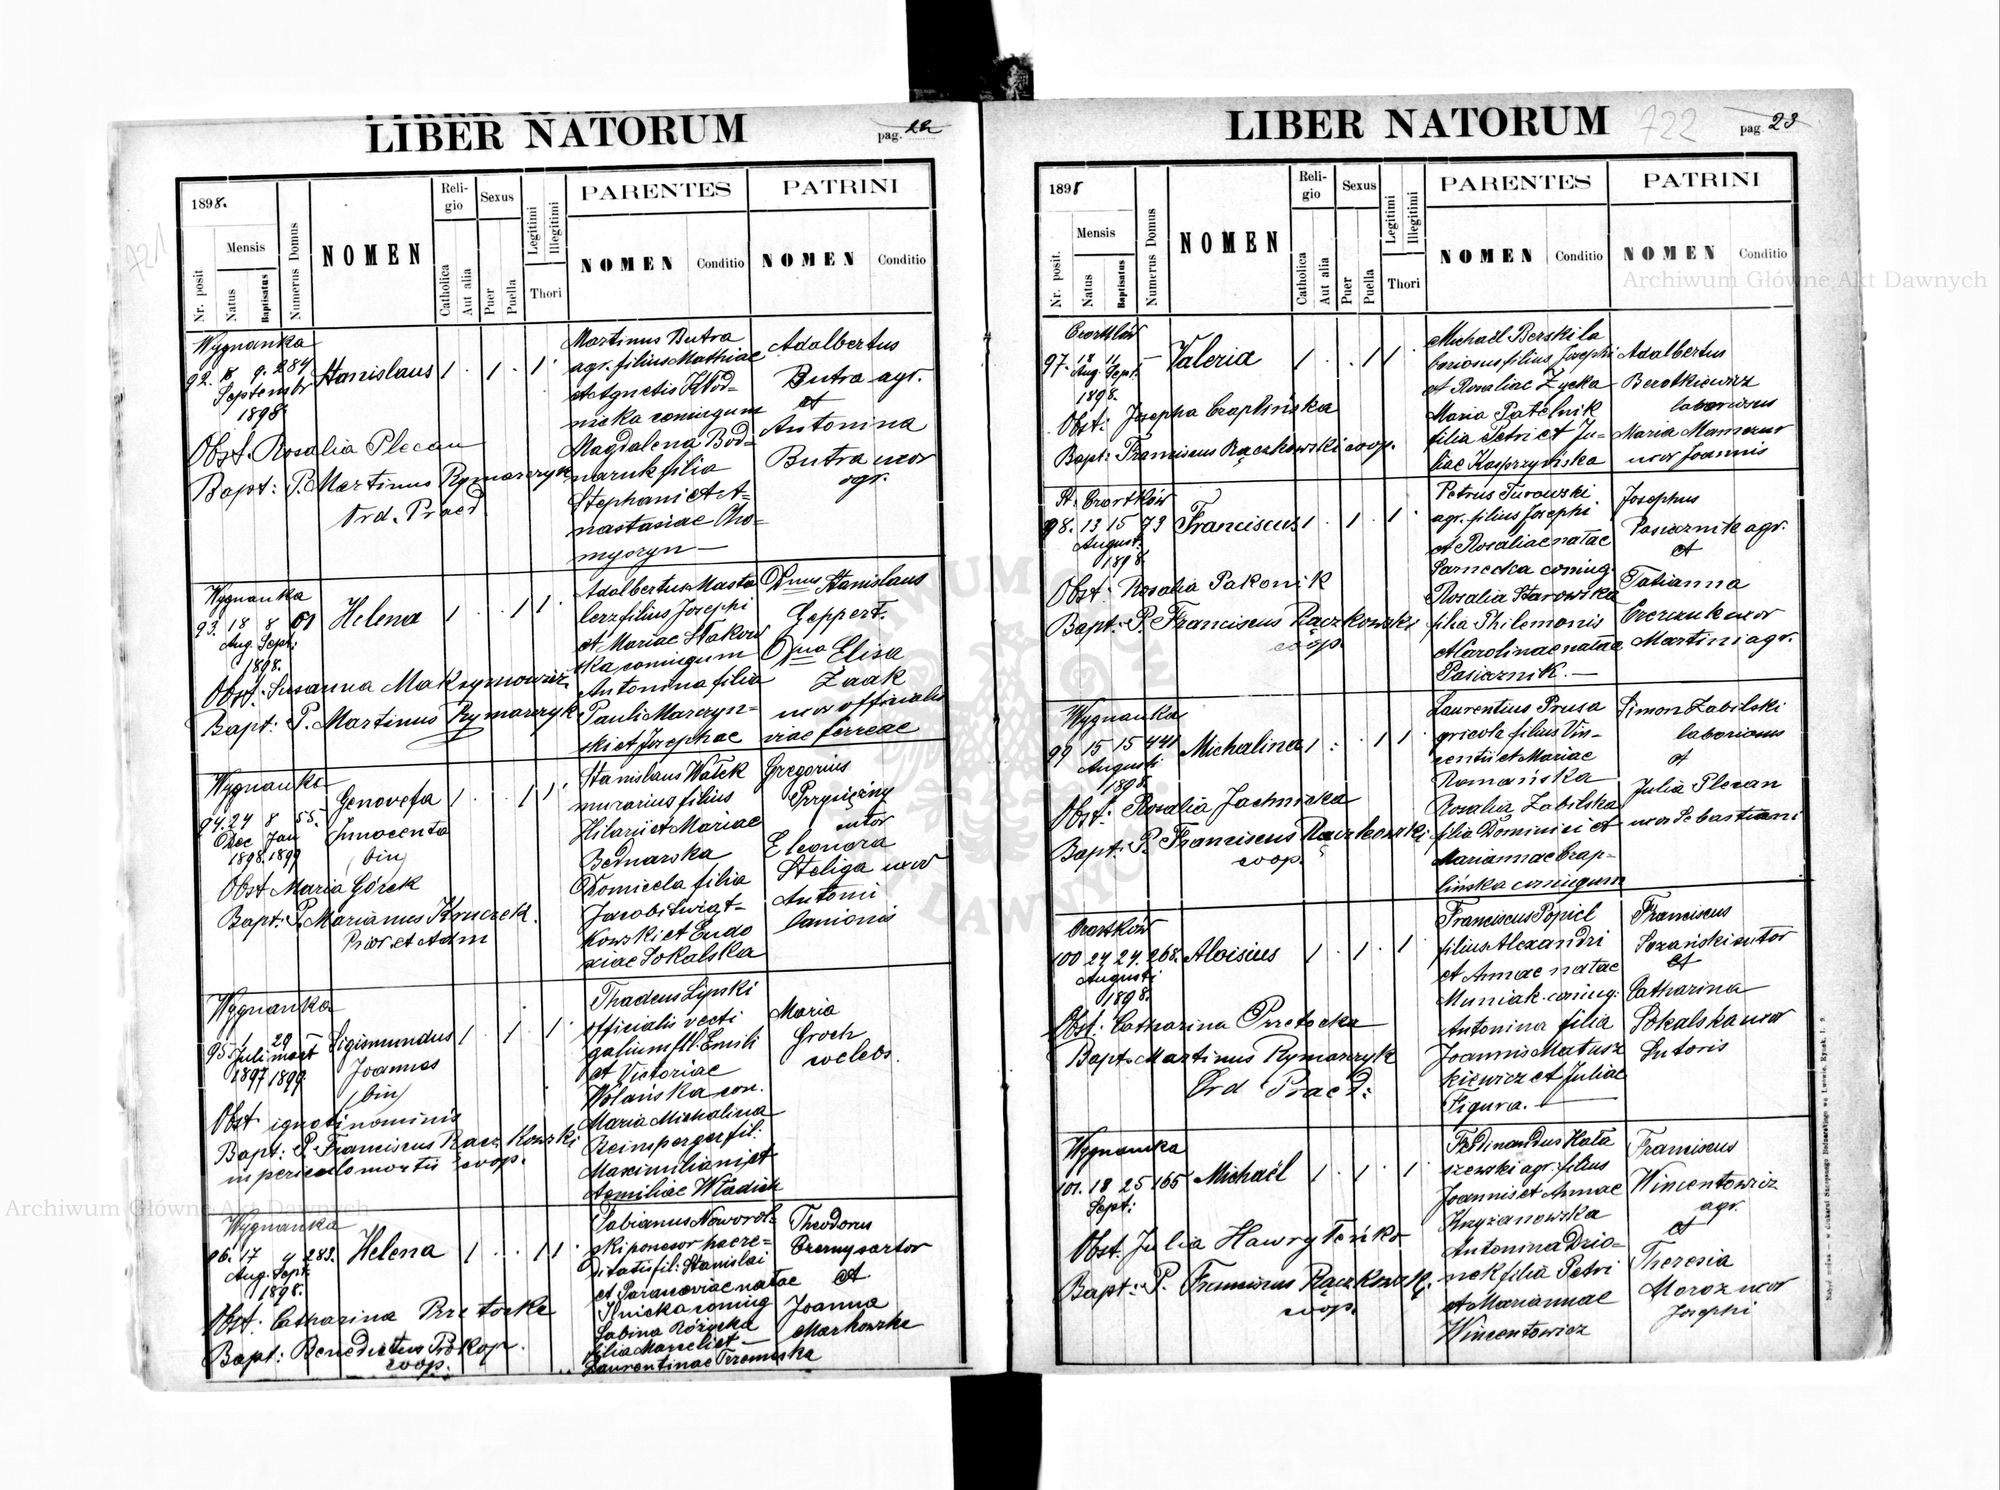 LIBER NATORUM
pag. 22
1898.
Nr. posit
Mensis
Natus
Baptisatus
Numerus Domus
NOMEN
Religio
Catholica
Aut alia
Sexus
Puer
Puella
Legitimi
Illegitimi
Thori
PARENTES
NOMEN
Conditio
PATRINI
NOMEN
Conditio
Wygnanka
92. 8. 9. 284
Septembr
1898.
Stanislaus
Obst. Rosalia Plecan
Bapt: P. Martinus Rymarczyk
Ord. Praed.
Martinus Butra
agr. filius Mathiae
et Agnetis Kłod-
nicka coniugum
Magdalena Bod-
naruk filia
Stephani et A-
nastasiae Cho-
myszyn —
Adalbertus
Butra agr.
et
Antonina
Butra uxor
agr.
Wygnanka
93. 18 8 61
Aug. Sept:
1898.
Helena
Obst: Susanna Maksymowicz
Bapt: P. Martinus Rymarczyk
Adalbertus Masta
lerz filius Josephi
et Mariae Słakow
ska coniugum
Antonina filia
Pauli Marczyn-
ski et Josephae
Dnus Stanislaus
Geppert.
Dna Elisa
Żaak
uxor officialis
viae ferreae
Wygnanka
94. 24 8 55.
Dec Jan
1898. 1899
Genovefa
Innocenta
(bin)
Obst Maria Górek
Bapt: P. Marianus Kruczek.
Prior et Adm
Stanislaus Wałek
murarius filius
Hilarii et Mariae
Bednarska
Domicela filia
Jacobi Swiąt-
kowski et Eudo
xiae Sokalska
Gregorius
Przysiężny
sutor
Eleonora
Steliga uxor
Antoni
lanionis
Wygnanka
95. 1 29 —
Juli mart
1897 1899.
Sigismundus
Joannes
(bin)
Obst ignoti nominis
Bapt: P. Franciscus Raczkowski
in periculo mortis coop.
Thadeus Lipski
officialis vecti
galium fil. Emili
et Victoriae
Wolańska con.
Maria Michalina
Reinsperger fil:
Maximiliani et
Aemiliae Władich
Maria
Groch
coelebs.
Wygnanka
96. 17 4 283.
Aug. Sept.
1898.
Helena
Obst: Catharina Przetocka
Bapt: Benedictus Prokop.
coop.
Fabianus Noworol-
ski possesor haere-
ditatis fil: Stanislai
et Parasceviae natae
Ilnicka coniug
Sabina Różycka
filia Marceli et —
Laurentinae Trzemeska
Theodorus
Czerny sartor
et
Joanna
Markowska
LIBER NATORUM
722
pag. 23
1898
Nr. posit.
Mensis
Natus
Baptisatus
Numerus Domus
NOMEN
Religio
Catholica
Aut alia
Sexus
Puer
Puella
Legitimi
Illegitimi
Thori
PARENTES
NOMEN
Conditio
PATRINI
NOMEN
Conditio
Czortków
97. 18 11 —
Aug. Sept.
1898.
Valeria
Obst: Josepha Czaplińska
Bapt: Franciscus Raczkowski coop.
Michaël Berski la
boriosus filius Josephi
et Rosaliae Zycka
Maria Patelnik
filia Petri et Ju-
liae Kasprzyńska
Adalbertus
Berotkiewicz
laboriosus
Maria Mamczur
uxor Joannis
St. Czortków
98. 13 15 73
August.
1898.
Franciscus
Obst: Rosalia Pakonik
Bapt: P. Franciscus Raczkowski
coop.
Petrus Turowski
agr. filius Josephi
et Rosaliae natae
Sarnecka coniug.
Rosalia Starowska
filia Philemonis
et Karolinae natae
Pasiaznik. —
Josephus
Pasiaznik agr.
et
Tatianna
Czerczuk uxor
Martini agr.
Wygnanka
99 15 15 441
Augusti
1898.
Michalina
Obst: Rosalia Jachnicka
Bapt: P. Franciscus Raczkowski
coop.
Laurentius Prusa
agricola filius Vin-
centii et Mariae
Romańska
Rosalia Zabilska
filia Dominici et
Mariannae Czap-
lińska coniugum
Simon Zabilski
laboriosus
et
Julia Plecan
uxor Sebastiani
Czortków
100 24 24. 268.
Augusti
1898.
Aloisius
Obst: Catharina Przetocka
Bapt: Martinus Rymarczyk
Ord Praed:
Franciscus Popiel
filius Alexandri
et Annae natae
Muniak. coniug:
Antonina filia
Joannis Matusz
kiewicz et Juliae
Figura. —
Franciscus
Sozański sutor
et
Catharina
Sokalska uxor
Sutoris
Wygnanka
101. 18 25 165
Sept:
Michaël
Obst: Julia Hawryłeńko
Bapt: P. Franciscus Raczkowski
coop.
Ferdinandus Kała
szewski agr. filius
Joannis et Annae
Krzyżanowska
Antonina Dzio-
nek filia Petri
et Mariannae
Wincentowicz
Franciscus
Wincentowicz
agr.
et
Theresia
Moroz uxor
Josephi
Archiwum Główne Akt Dawnych
Archiwum Główne Akt Dawnych